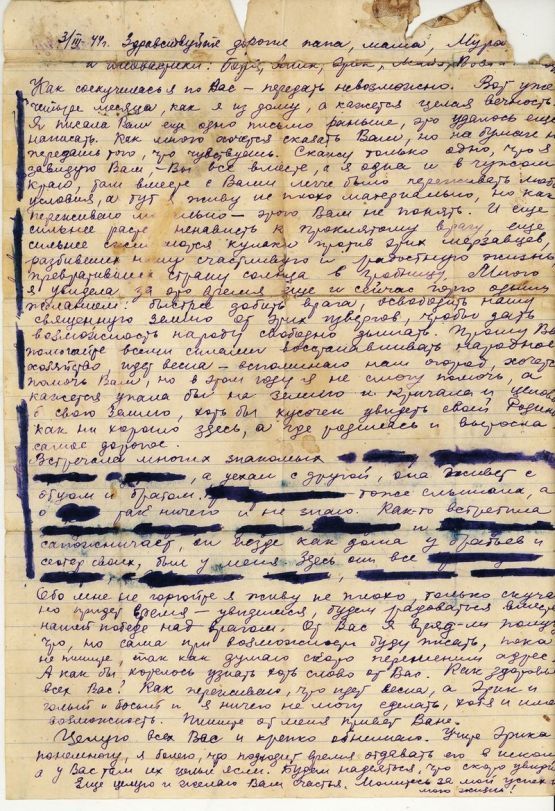 3/III-44г. Здравствуйте дорогие папа, мама, Мура
и племянники: Боря, Алик, Эрик,
Как соскучилась я по Вас – передать невозможно. Вот уже
четыре месяца, как я из дому, а кажется целая вечность
Я писала Вам еще одно письмо раньше, это удалось еще
написать. Как много хочется сказать Вам, но на бумаге не
передашь того, что чувствуешь. Скажу только одно, что я
завидую Вам, – Вы все вместе, а я одна и в чужом
краю, там вместе с Вами легче было переживать любые
условия, а тут я живу не плохо материально, но как
переживаю – этого Вам не понять. И еще
сильнее растет ненависть к проклятому врагу, еще
сильнее сжимаются кулаки против этих мерзавцев,
разбивших нашу счастливую и радостную жизнь
превративших страну солнца в гробницу. Много
я увидела за это время еще и сейчас горю одним
желанием: быстрее добить врага, освободить нашу
священную землю от этих извергов, чтобы дать
возможность народу свободно дышать. Прошу Вас
помогайте всеми силами восстанавливать народное
хозяйство, идет весна – вспоминаю наш огород, хочется
помочь Вам, но в этом году я не смогу помочь, а
кажется упала бы на землю и кричала и целовала
б свою Землю, хоть бы кусочек увидеть своей Родины
как ни хорошо здесь, а где родилась и выросла
самое дорогое.
Встречала многих знакомых
, а уехали с другой, она живет с
отцом и братом. тоже слышала, а
о так ничего и не знаю. Как-то встретила
и
сапожничает, он везде как дома у братьев и
сестер своих, был у меня. Здесь они все
Обо мне не горюйте я живу не плохо, только скучаю
но придет время – увидимся, будем радоваться вместе
нашей победе над врагом. От Вас я вряд-ли получу
что, но сама при возможности буду писать, пока
не пишите, так как думаю скоро переменим адрес.
А как бы хотелось узнать хоть слово от Вас. Как здоровье
всех Вас? Как переживаю, что идет весна, а Эрик и
голый и босый и я ничего не могу сделать, хотя и имею
возможность. Пишите от меня привет Ване.
Целую всех Вас и крепко обнимаю. Учите Эрика
понемногу, я болею, что подходит время отдавать его в школу
а у Вас там их целые ясли. Будем надеяться, что скоро увидимся
Еще целую и желаю Вам счастья. Молитесь за мой успех в
моей жизни!